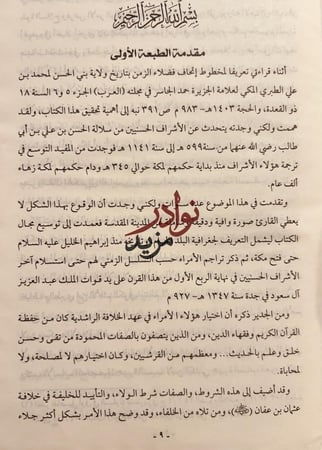 بسم الله الرحمن الرحيم
مقدمة الطبعة الأولى
أثناء قراءتي تعريفا لمخطوط إتحاف فضلاء الزمن بتاريخ ولاية بني الحسن لمحمد بن
علي الطبري المكي لعلامة الجزيرة حمد الجاسر في مجلته (العرب) الجزء ٥ و٦ السنة ١٨
ذو القعدة، والحجة ١٤٠٣هـ - ٩٨٣ م ص ٣٩١ نبه إلى أهمية تحقيق هذا الكتاب، ولقد
هممت ولكني وجدته يتحدث عن الأشراف الحسنيين من سلالة الحسن بن علي بن أبي
طالب رضي الله عنها من سنة ٥٩٩ هـ إلى سنة ١١٤١ هـ فوجدت من المفيد التوسع في
ترجمة هؤلاء الأشراف منذ بداية حكمهم لمكة حوالي ٣٤٥ هـ ودام حكمهم لمكة زهاء
ألف عام.
وتقدمت في هذا الموضوع عدة ولكني وجدت أن الوقوع بهذا الشكل لا
يعطي القارئ صورة وافية ودقيقة المدينة المقدسة فعمدت إلى توسيع مجال
الكتاب ليشمل التعريف لجغرافية البلد منذ إبراهيم الخليل عليه السلام
حتى فتح مكة، ثم ذكر تراجم الأمراء حسب التسلسل الزمني لهم حتى استسلام آخر
الأشراف الحسنيين في نهاية الربع الأول من هذا القرن على يد قوات الملك عبد العزيز
آل سعود في جدة سنة ١٣٤٧ هـ - ٩٢٧ م
ومن الجدير ذكره أن اختيار هؤلاء الأمراء في عهد الخلافة الراشدية كان من حفظة
القرآن الكريم وفقهاء الدين، ومن الذين يتصفون بالصفات المحمودة من تقى وحسن
خلق وعلم بالحديث... ومعظمهم من القرشيين، وكان اختيارهم لا لمصلحة، ولا
لمحاباة.
وقد أضيف إلى هذه الشروط، والصفات شرط الولاء، والتأييد للخليفة في خلافة
عثمان بن عفان (رضي الله عنه)، ومن تلاه من الخلفاء، وقد وضح هذا الأمر بشكل أكثر جلاء
- ٩ -
نوادر
مزيد